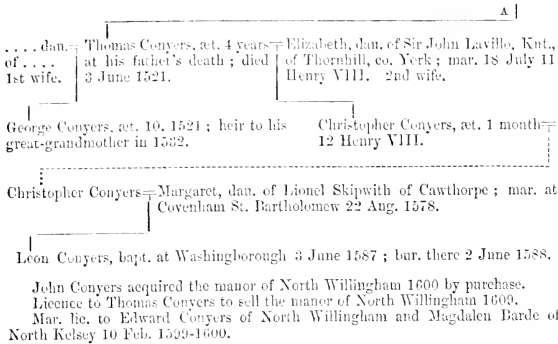 A
. . . . dau. Thomas Conyers, æt. 4 years Elizabeth, dau. of Sir John Laville, Knt.,
of . . . . at his father's death ; died of Thornhill, co. York ; mar. 18 July 11
1st wife. 3 June 1521. Henry VIII. 2nd wife.
George Conyers, æt. 10. 1521 ; heir to his Christopher Conyers, æt. 1 month
great-grandmother in 1532. 12 Henry VIII.
Christopher Conyers Margaret, dau. of Lionel Skipwith of Cawthorpe ; mar. at
Covenham St. Bartholomew 22 Aug. 1578.
Leon Conyers, bapt. at Washingborough 3 June 1587 ; bur. there 2 June 1588.
John Conyers acquired the manor of North Willingham 1600 by purchase.
Licence to Thomas Conyers to sell the manor of North Willingham 1609.
Mar. lic. to Edward Conyers of North Willingham and Magdalen Barde of
North Kelsey 10 Feb. 1599-1600.